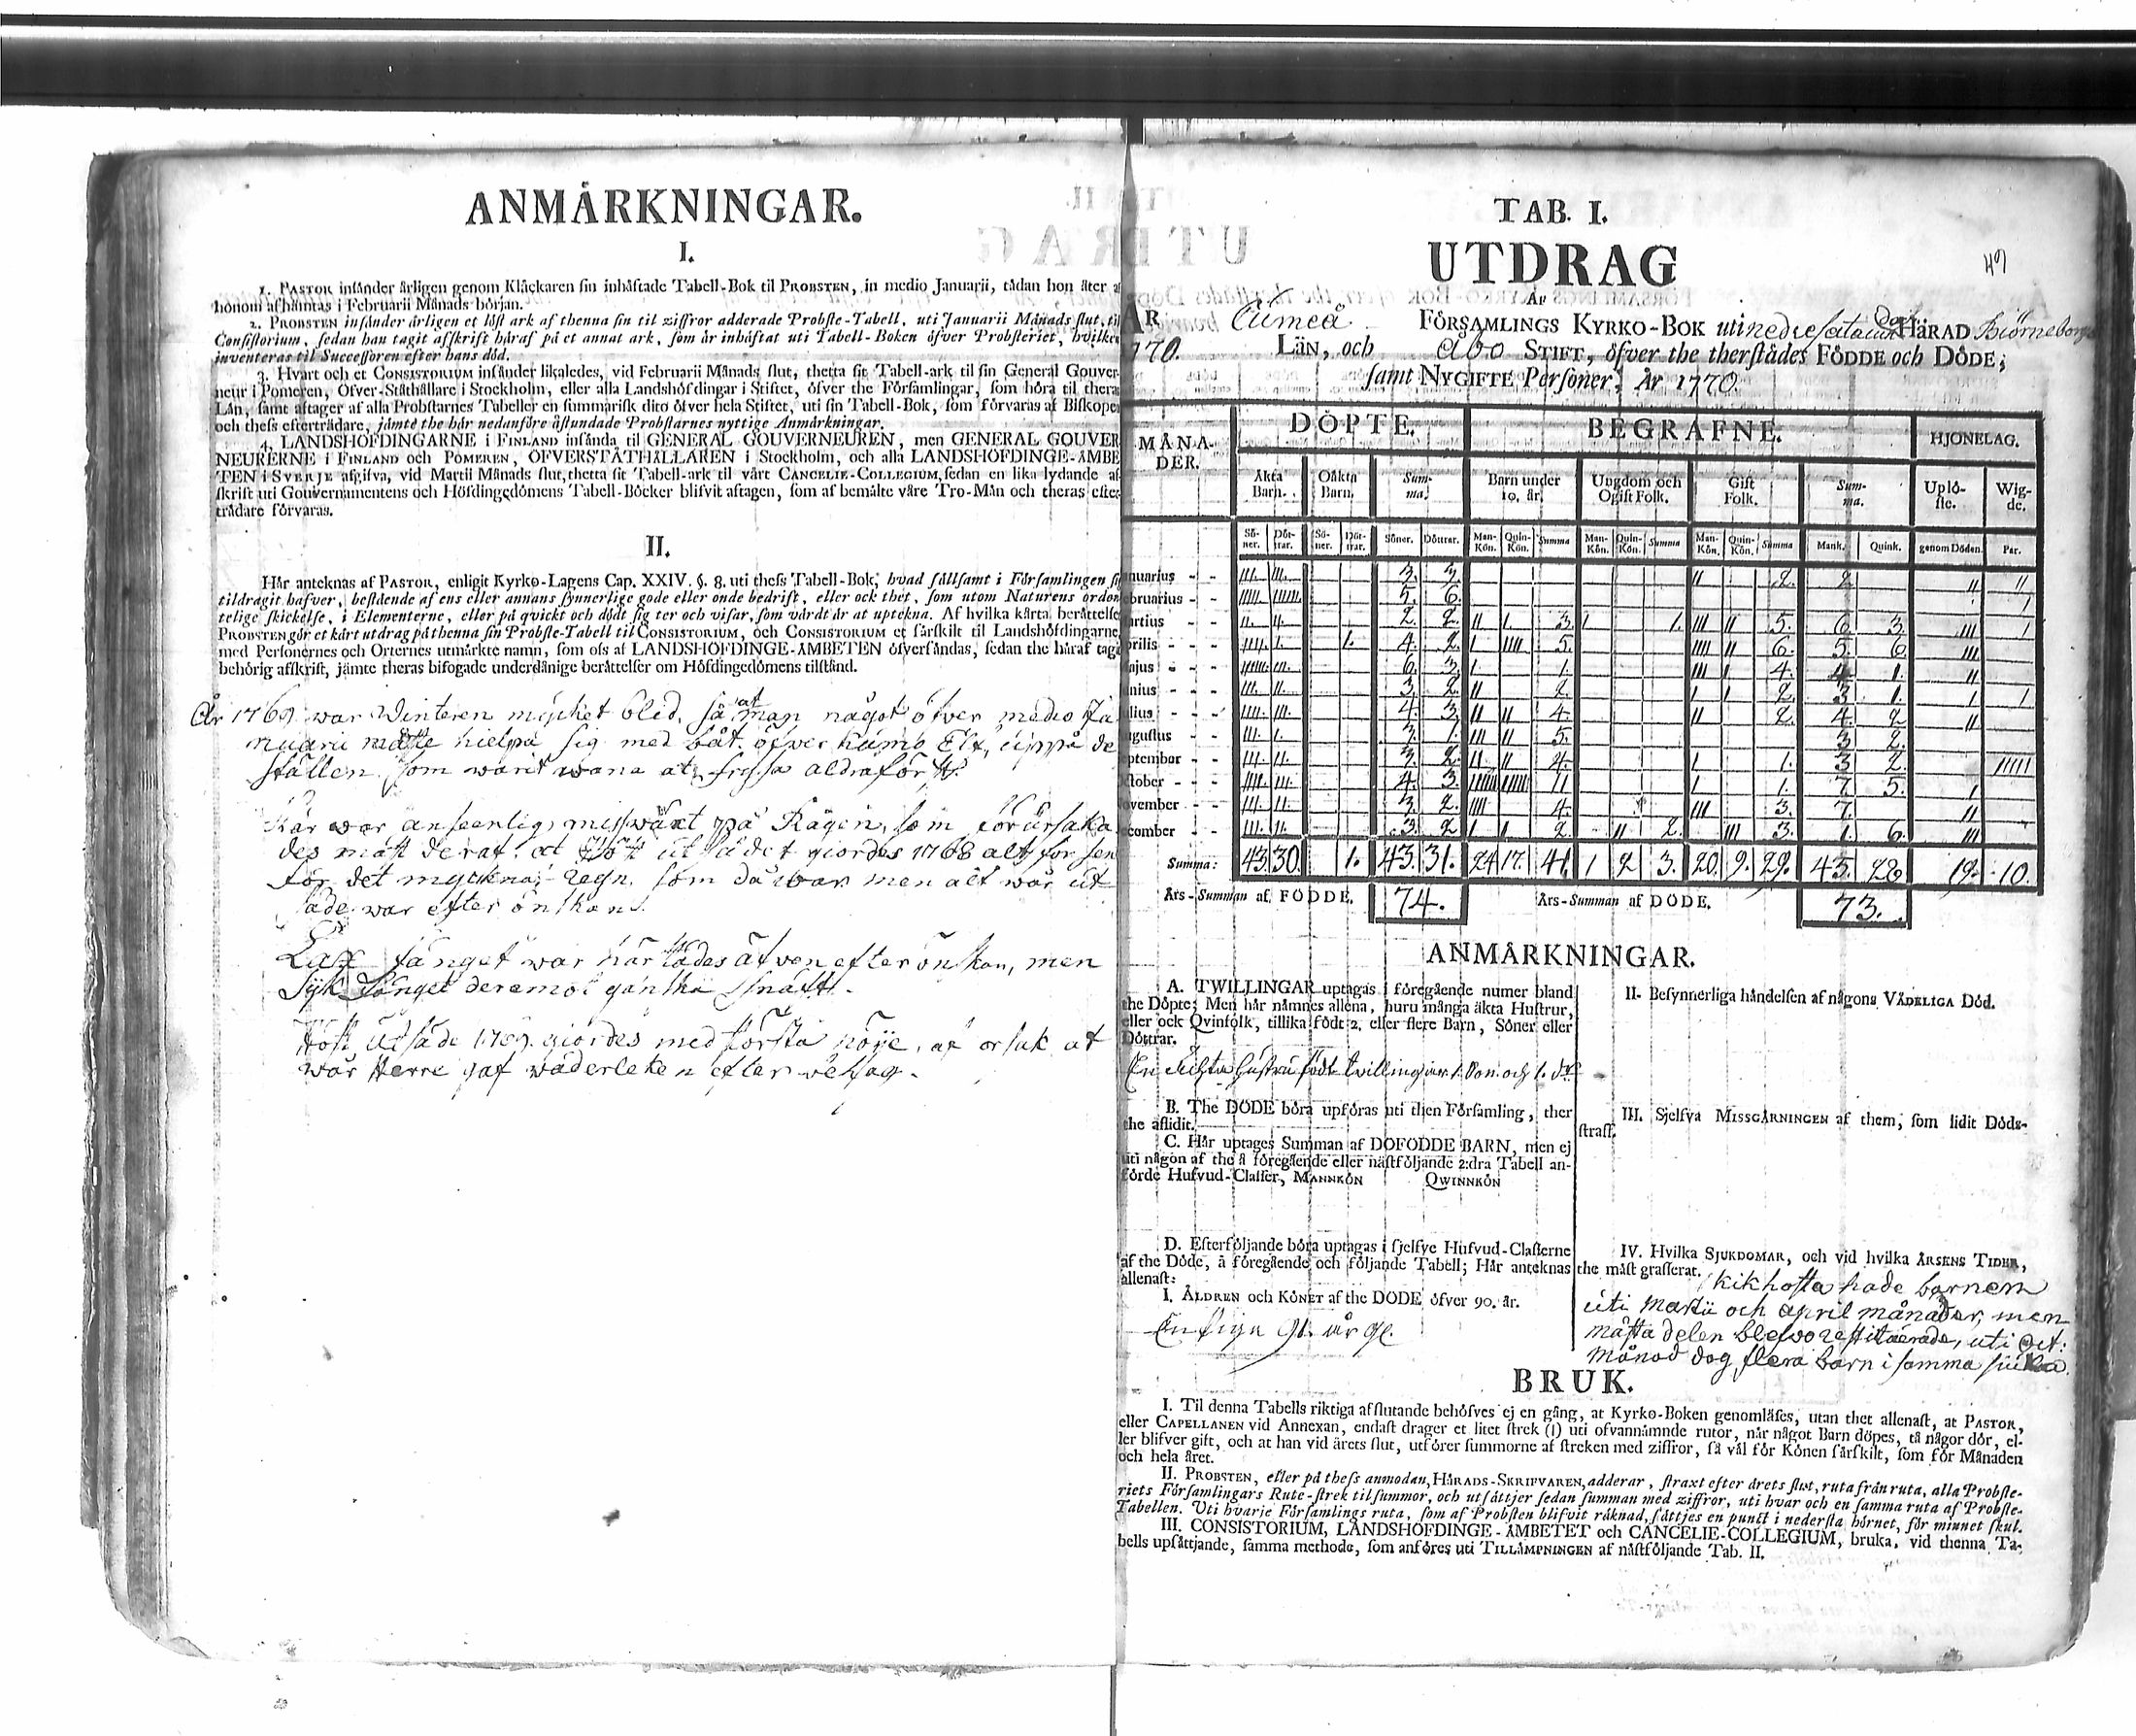 ANMÄRKNINGAR.
I.
1. PASTOR insänder årligen genom Klåckaren sin inhäftade Tabell-Bok til PROBSTEN, in medio Januarii, tådan hon åter af
honom afhämtas i Februarii Månads början.
2. PROBSTEN insänder årligen et löst ark af thenna sin til ziffror adderade Probste-Tabell, uti Januarii Månads slut, til
Consistorium, sedan han tagit afskrift häraf på et annat ark, som är inhäftat uti Tabell-Boken öfver Probsteriet, hvilken
inventeras til Successoren efter hans död.
3. Hvart och et CONSISTORIUM insänder likaledes, vid Februarii Månads slut, thetta sit Tabell-ark til sin General Gouver-
neur i Pomeren, Öfver-Ståthållare i Stockholm, eller alla Landshöfdingar i Stiftet, öfver the Församlingar, som höra til thera
Län, samt aftager af alla Probstarnes Tabeller en summarisk dito öfver hela Stiftet, uti sin Tabell-Bok, som förvaras af Biskopen
och thess efterträdare, jämte the här nedanföre åstundade Probstarnes nyttige Anmärkningar.
4. LANDSHÖFDINGARNE i FINLAND insända til GENERAL GOUVERNEUREN, men GENERAL GOUVER
NEURERNE i FINLAND och POMEREN, ÖFVERSTÅTHÅLLAREN i Stockholm, och alla LANDSHÖFDINGE-ÄMBE
TEN i SVERJE afgifva, vid Martii Månads slut, thetta sit Tabell-ark til vårt CANCELIE-COLLEGIUM, sedan en lika lydande af
skrift uti Gouvernamentens och Höfdingedömens Tabell-Böcker blifvit aftagen, som af bemälte våre Tro-Män och theras efter
trädare förvaras.
II.
Här anteknas af PASTOR, enligit Kyrko-Lagens Cap. XXIV. §. 8. uti thess Tabell-Bok, hvad sällsamt i Församlingen sig
tildragit hafver, bestående af ens eller annans synnerlige gode eller onde bedrift, eller ock thet, som utom Naturens orden
telige skickelse, i Elementerne, eller på qvickt och dödt sig ter och visar, som värdt är at uptekna. Af hvilka kårta berättelser
PROBSTEN gör et kårt utdrag på thenna sin Probste-Tabell til CONSISTORIUM, och CONSISTORIUM et särskilt til Landshöfdingarne,
med Personernes och Orternes utmärkte namn, som oss af LANDSHÖFDINGE-ÄMBETEN öfversändas, sedan the häraf tagit
behörig afskrift, jämte theras bifogade underdånige berättelser om Höfdingedömens tilstånd.
År 1769 war Winteren mycket blid, så at man något öfver medio Ja
nuarii måtte hielpa sig med båt öfver Kumo Elf, uppå de
ställen som warit wana at frysa aldraförst.
Här war ansenlig misswäxt på Rågen, som förorsaka
des mäst deraf, at Höst utsädet giordes 1768 alt för sen
för det myckna Regn som då war men alt wår ut
säde war efter önskan.
Lax fänget war härstädes äfven efter önskan, men
Syk fänget deremot ganska snått.
Höst utsäde 1769 giordes med största nöije, af orsak at
wår Herre gaf wäderleken efter behag.
TAB. I.
49
UTDRAG
AF
ÅR Cumeå FÖRSAMLINGS KYRKO-BOK uti nedre Satacunda HÄRAD Biörneborgs
1770. LÄN, och Åbo STIFT, öfver the therstädes FÖDDE och DÖDE,
samt NYGIFTE Personer, År 1770.
MÅNA-DER. DÖPTE. BEGRAFNE. HJONELAG.
Äkta Barn. Oäkta Barn. Sum-ma. Barn under 10. år. Ungdom och Ogift Folk. Gift Folk. Sum-ma. Uplö-ste. Wig-de.
Sö-ner. Döt-trar. Sö-ner. Döt-trar. Söner. Döttrar. Man-Kön. Quin-Kön. Summa Man-Kön. Quin-Kön. Summa Man-Kön. Quin-Kön. Summa Mank. Quink. genom Döden. Par.
anuarius - - III. III. 3. 3. II 2. 2. II II
ebruarius - - IIIII IIIIII 5. 6. I
artius II. II. 2. 2. II I. 3. I 1. III II 5. 6. 3. III I
prilis - - - IIII. I. 1. 4. 2. I IIII 5. IIII II 6. 5. 6. III
ajus - - - IIIIII III. 6. 3. I 1. III I 4. 4. 1. II
unius - - - III. II. 3. 2. II 2. I I 2. 3. 1. I I
ulius - - IIII. III. 4. 3. II II 4. II 2. 4. 2. II
ugustus - - III. I. 3. 1. III II 5. 3 2.
eptember - - III. II. 3. 2. II II 4. I 1. 3 2. IIIII
ctober - - IIII. III. 4. 3. 11 I 1. 7. 5. I
ovember - - III. II. 3. 2. IIII 4. III 3. 7. II
ecember - - III. II. 3. 2 I I 2. II 2. III 3. 1. 6. III
Summa: 43. 30. 1. 43. 31. 24 17. 41. 1 2 3. 20. 9. 29. 45. 28 19. 10.
Års-Summan af FÖDDE. 74. Års-Summan af DÖDE. 73.
ANMÄRKNINGAR.
A. TWILLINGAR uptagas i föregående numer bland
the Döpte; Men här nämnes allena, huru många äkta Hustrur,
eller ock Qvinfolk, tillika födt 2. eller flere Barn, Söner eller
Döttrar.
En Ächta hustru födt tvillingar 1. Son och 1. dr
B. The DÖDE böra upföras uti then Församling, ther
the aflidit.
C. Här uptages Summan af DÖFÖDDE BARN, men ej
uti någon af the å föregående eller nästföljande 2:dra Tabell an-
förde Hufvud-Classer, MANNKÖN QWINNKÖN
D. Efterföljande böra uptagas i sjelfve Hufvud-Classerne
af the Döde, å föregående och följande Tabell; Här anteknas
allenast:
I. ÅLDREN och KÖNET af the DÖDE öfver 90. år.
En Piga 91. år gl.
II. Besynnerliga händelsen af någons VÅDELIGA Död.
III. Sjelfva MISSGÄRNINGEN af them, som lidit Döds-
straff.
IV. Hvilka SJUKDOMAR, och vid hvilka ÅRSENS TIDER,
the mäst grasserat. Kikhosta hade barnen
uti Martii och April månader, men
mästa delen blefvo restituerade, uti Oct:
månad dog flera barn i samma siuka.
BRUK.
I. Til denna Tabells riktiga afslutande behöfves ej en gång, at Kyrko-Boken genomläses, utan thet allenast, at PASTOR,
eller CAPELLANEN vid Annexan, endast drager et litet strek (I) uti ofvannämnde rutor, når något Barn döpes, tå någor dör, el-
ler blifver gift, och at han vid årets slut, utförer summorne af streken med ziffror, så väl för Könen särskilt, som för Månaden
och hela året.
II. PROBSTEN, eller på thess anmodan, HÄRADS-SKRIFVAREN, adderar, straxt efter årets slut, ruta från ruta, alla Probste-
riets Församlingars Rute-strek til summor, och utsättjer sedan summan med ziffror, uti hvar och en samma ruta af Probste-
Tabellen. Uti hvarje Församlings ruta, som af Probsten blifvit räknad, sättjes en punct i nedersta hörnet, för minnet skul.
III. CONSISTORIUM, LANDSHÖFDINGE-ÄMBETET och CANCELIE-COLLEGIUM, bruka, vid thenna Ta-
bells upsättjande, samma methode, som anföres uti TILLÄMPNINGEN af nästföljande Tab. II.